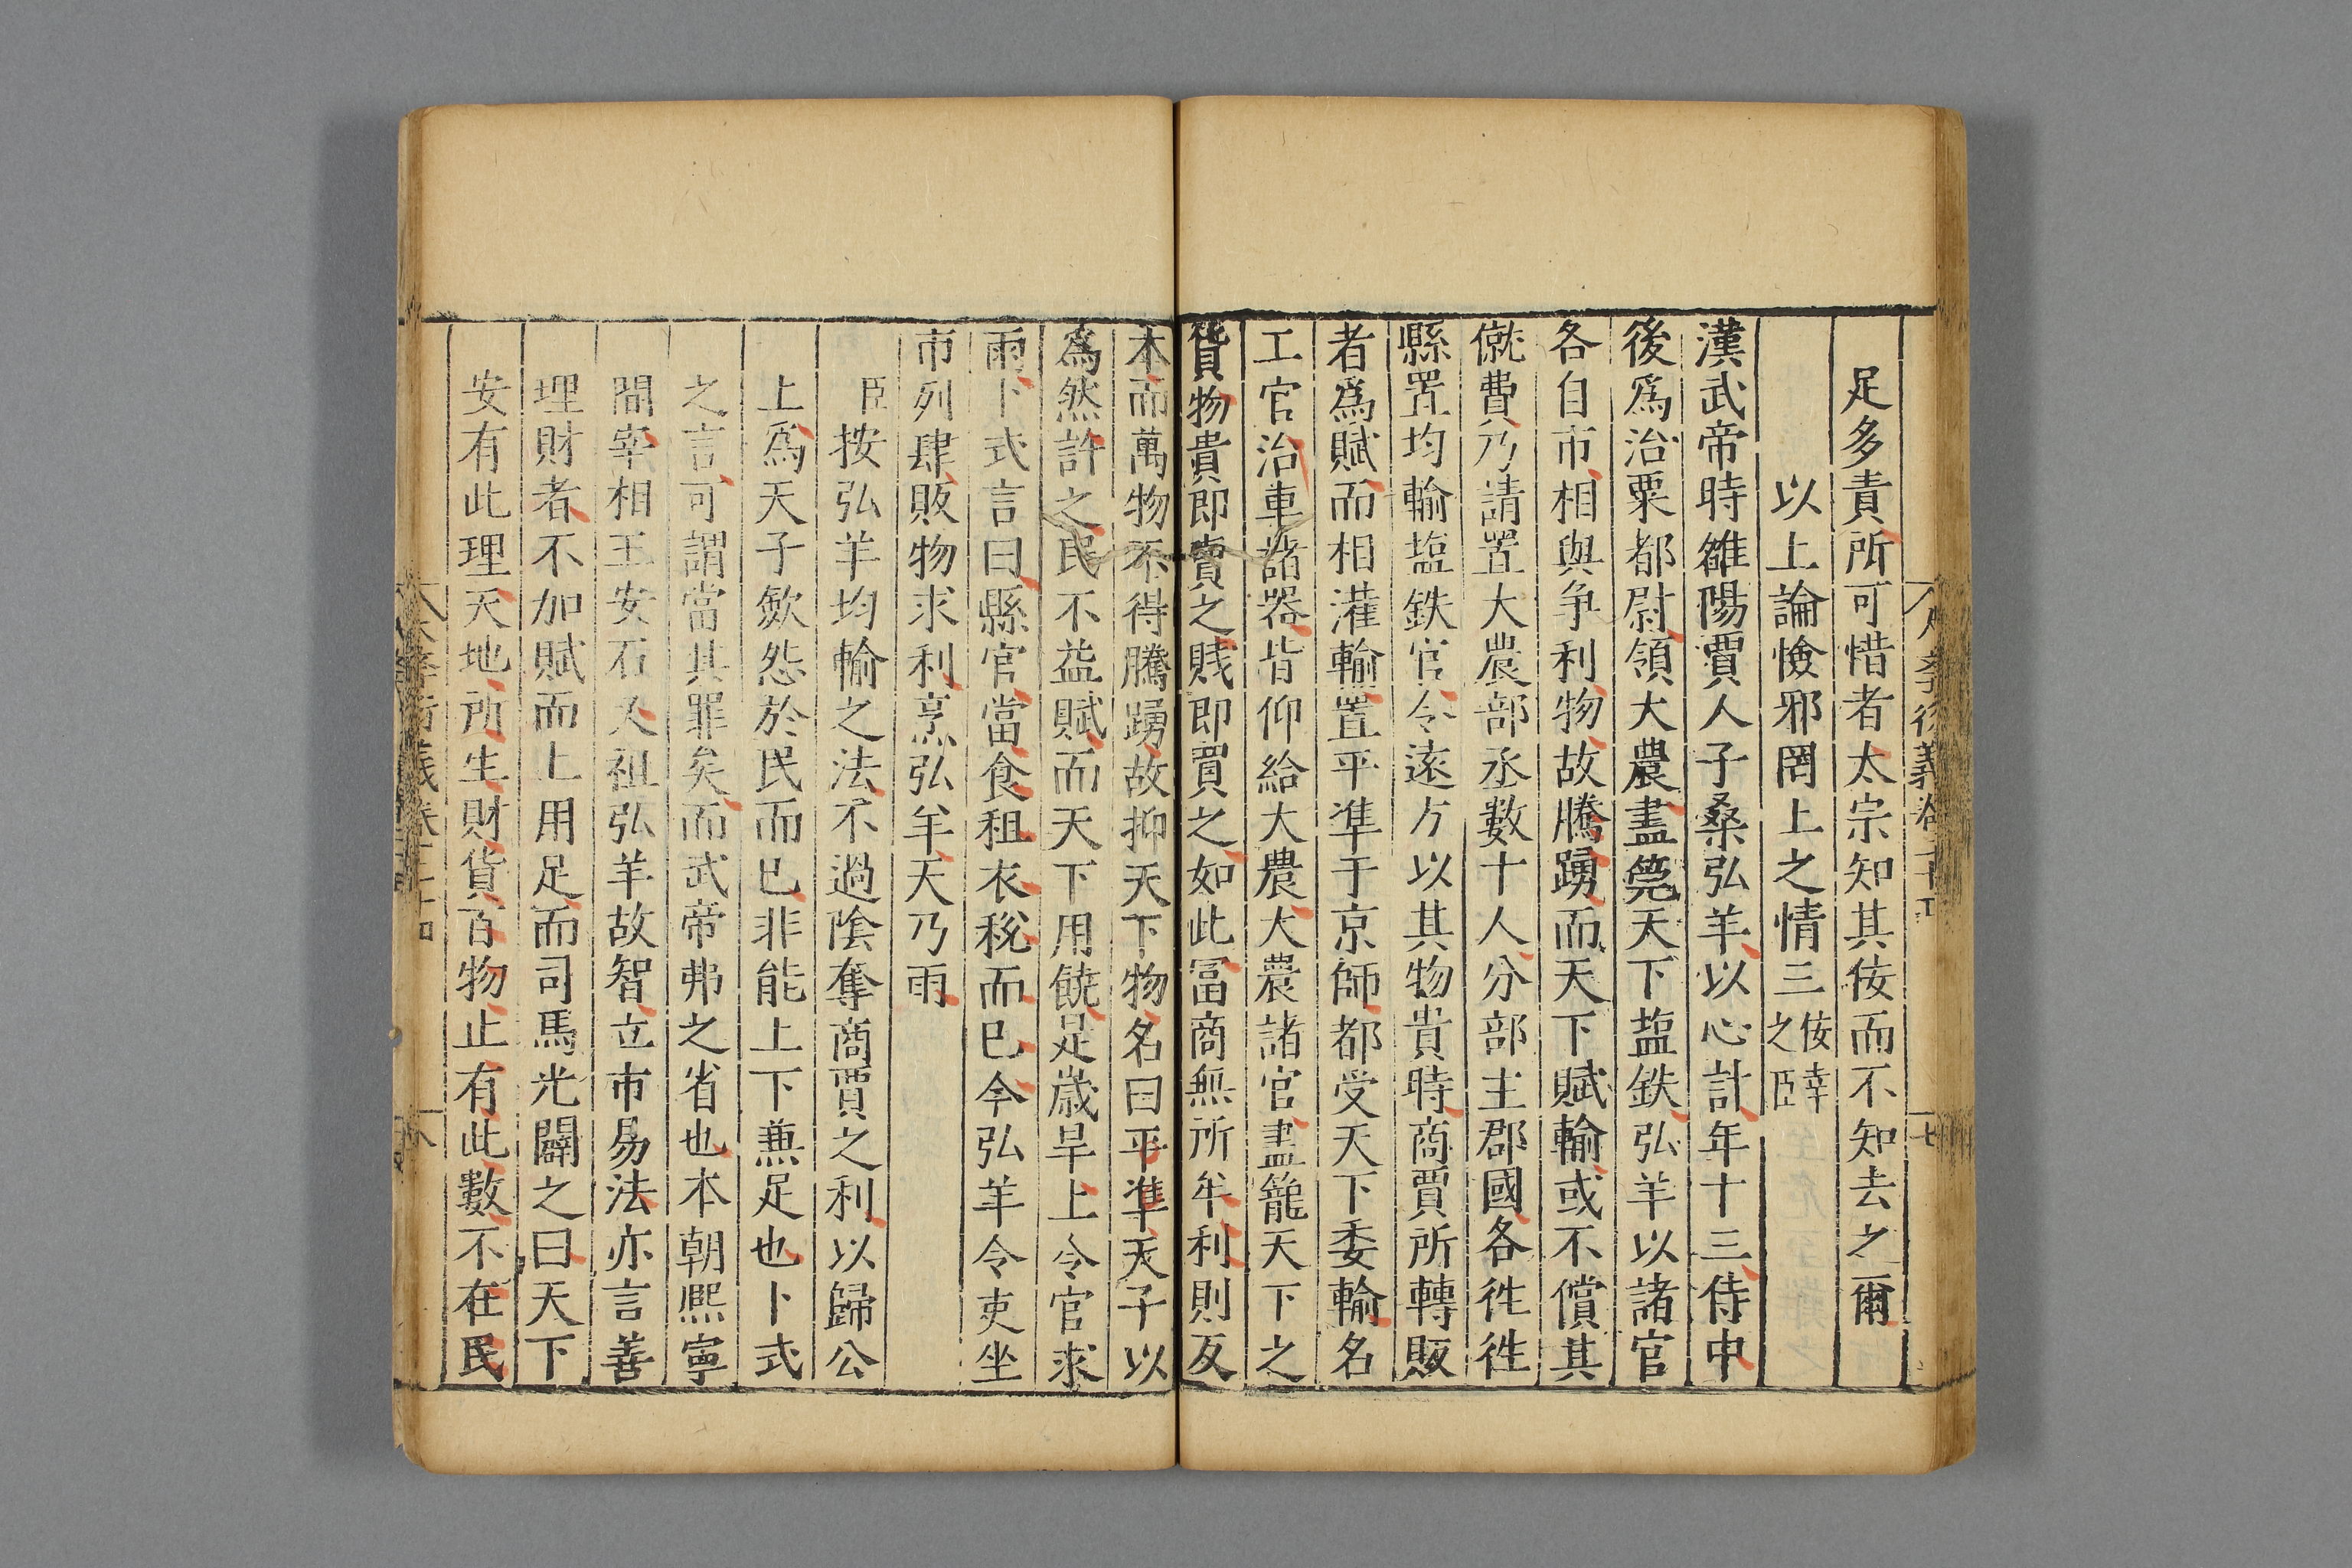 足多責所可惜者太宗知其佞而不知去之爾
以上論憸邪罔上之情三佞幸之臣
漢武帝時雒陽賈人子桑弘羊以心計年十三侍中
後爲治粟都尉領大農盡筦天下塩鉄弘羊以諸官
各自市相與争利物故騰踴而天下賦輸或不償其
僦費乃請置大農部丞數十人分部主郡國各徃徃
縣置均輸塩鉄官令遠方以其物貴時商賈所轉販
者爲賦而相灌輸置平準于京師都受天下委輸名
工官治車諸器皆仰給大農大農諸官盡籠天下之
貨物貴即賣之賎即買之如此冨商無所牟利則反
本而萬物不得騰踴故抑天下物名曰平準天子以
爲然許之民不益賦而天下用饒足歳旱上令官求
雨卜式言曰縣官當食租衣稅而巳今弘羊令吏坐
市列肆販物求利烹弘羊天乃雨
臣按弘羊均輸之法不過陰奪商賈之利以歸公
上爲天子歛怨於民而巳非能上下兼足也卜式
之言可謂當其罪矣而武帝弗之省也本朝熙寧
間宰相王安石又祖弘羊故智立市易法亦言善
理財者不加賦而上用足而司馬光闢之曰天下
安有此理天地所生財貨百物止有此數不在民